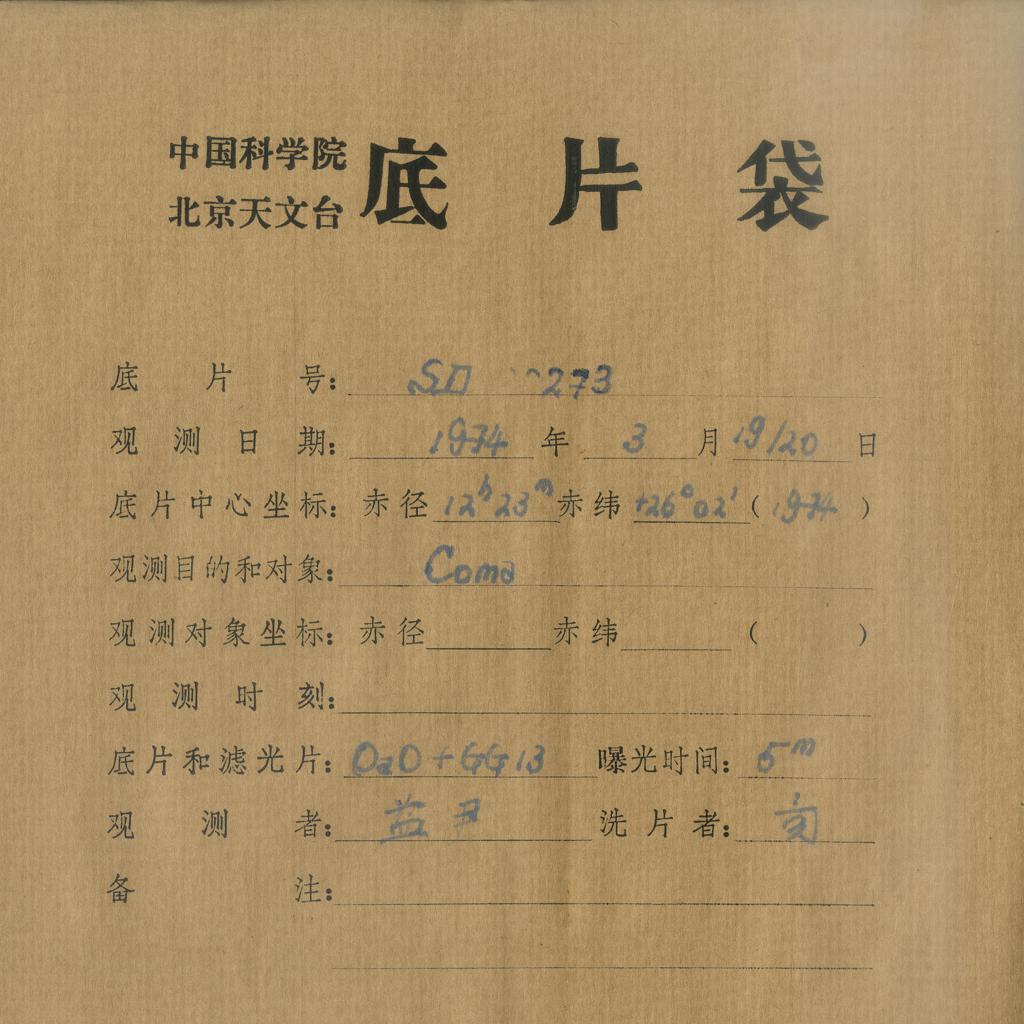 中国科学院
北京天文台
底片袋
底片号: SD 273
观测日期: 1974 年 3 月 19/20 日
底片中心坐标: 赤径 12ʰ23ᵐ 赤纬 +26°02′ (1974)
观测目的和对象: Coma
观测对象坐标: 赤径 赤纬 ( )
观测时刻:
底片和滤光片: OaO+GG13 曝光时间: 5ᵐ
观测者: 洗片者:
备注: